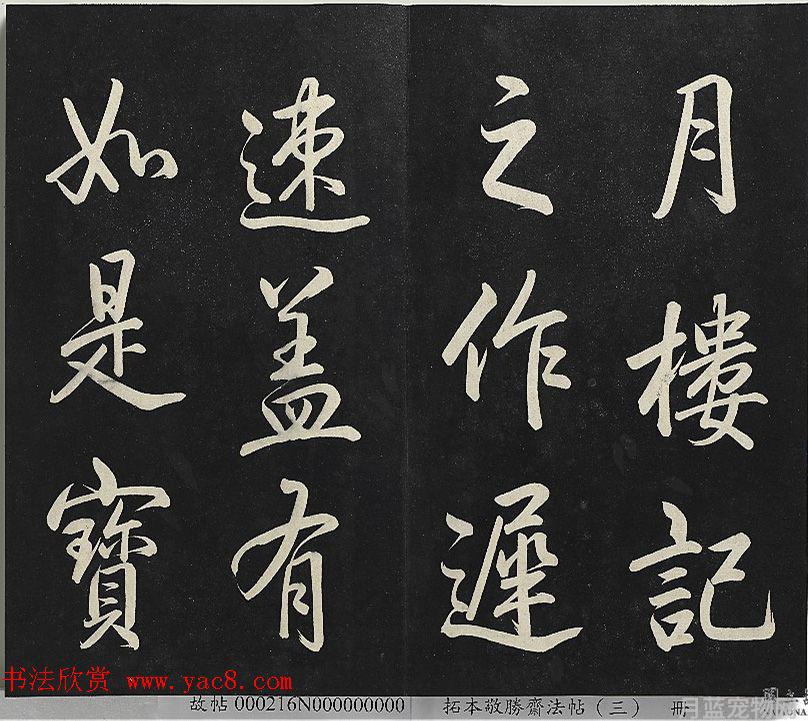 月樓記
之作遲
速盖有
如是寶
书法欣赏 www.yac8.com
故帖 000216N000000000
拓本敬勝齋法帖（三） 冊